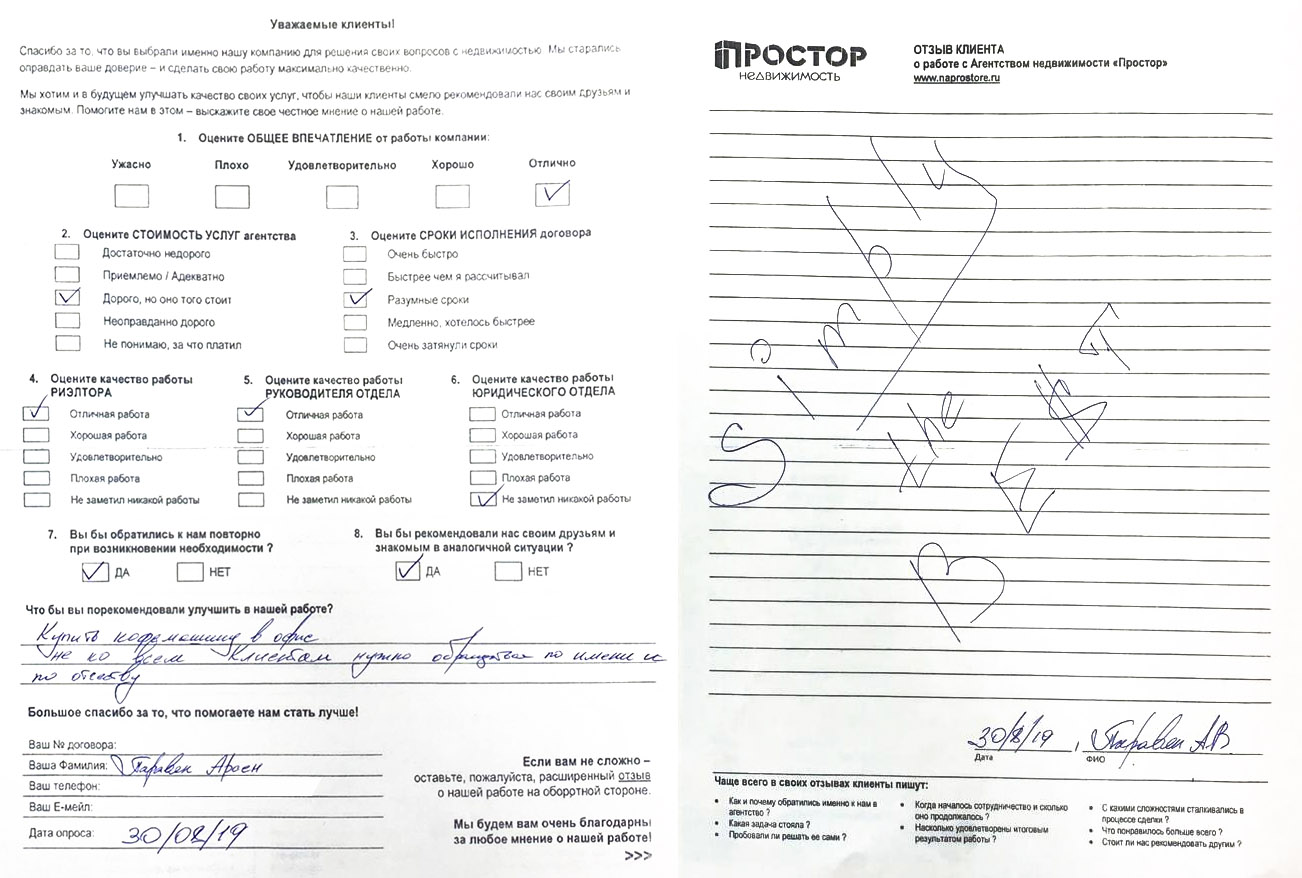 Уважаемые клиенты!
Спасибо за то, что вы выбрали именно нашу компанию для решения своих вопросов с недвижимостью. Мы старались
оправдать ваше доверие – и сделать свою работу максимально качественно.
Мы хотим и в будущем улучшать качество своих услуг, чтобы наши клиенты смело рекомендовали нас своим друзьям и
знакомым. Помогите нам в этом – выскажите свое честное мнение о нашей работе.
1. Оцените ОБЩЕЕ ВПЕЧАТЛЕНИЕ от работы компании:
Ужасно Плохо Удовлетворительно Хорошо Отлично
2. Оцените СТОИМОСТЬ УСЛУГ агентства
Достаточно недорого
Приемлемо / Адекватно
Дорого, но оно того стоит
Неоправданно дорого
Не понимаю, за что платил
3. Оцените СРОКИ ИСПОЛНЕНИЯ договора
Очень быстро
Быстрее чем я рассчитывал
Разумные сроки
Медленно, хотелось быстрее
Очень затянули сроки
4. Оцените качество работы
РИЭЛТОРА
Отличная работа
Хорошая работа
Удовлетворительно
Плохая работа
Не заметил никакой работы
5. Оцените качество работы
РУКОВОДИТЕЛЯ ОТДЕЛА
Отличная работа
Хорошая работа
Удовлетворительно
Плохая работа
Не заметил никакой работы
6. Оцените качество работы
ЮРИДИЧЕСКОГО ОТДЕЛА
Отличная работа
Хорошая работа
Удовлетворительно
Плохая работа
Не заметил никакой работы
7. Вы бы обратились к нам повторно
при возникновении необходимости ?
ДА НЕТ
8. Вы бы рекомендовали нас своим друзьям и
знакомым в аналогичной ситуации ?
ДА НЕТ
Что бы вы порекомендовали улучшить в нашей работе?
Купить кофемашину в офис
не ко всем клиентам нужно обращаться по имени и
по отчеству
Большое спасибо за то, что помогаете нам стать лучше!
Ваш № договора:
Ваша Фамилия:
Ваш телефон:
Ваш Е-мейл:
Дата опроса: 30/08/19
Если вам не сложно –
оставьте, пожалуйста, расширенный отзыв
о нашей работе на оборотной стороне.
Мы будем вам очень благодарны
за любое мнение о нашей работе!
>>>
ПРОСТОР
недвижимость
ОТЗЫВ КЛИЕНТА
о работе с Агентством недвижимости «Простор»
www.naprostore.ru
Simply
the
best
30/8/19
Дата , ФИО
Чаще всего в своих отзывах клиенты пишут:
• Как и почему обратились именно к нам в
агентство ?
• Какая задача стояла ?
• Пробовали ли решать ее сами ?
• Когда началось сотрудничество и сколько
оно продолжалось ?
• Насколько удовлетворены итоговым
результатом работы ?
• С какими сложностями сталкивались в
процессе сделки ?
• Что понравилось больше всего ?
• Стоит ли нас рекомендовать другим ?